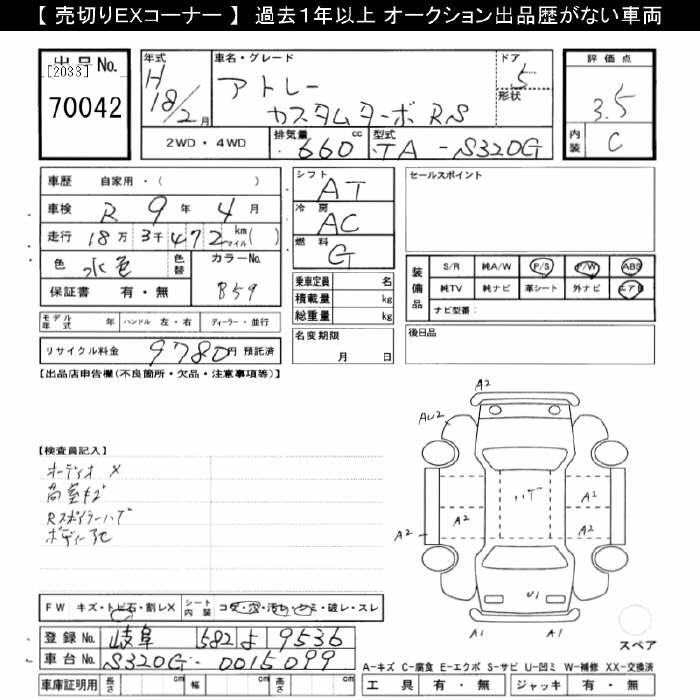 【 売切りEXコーナー 】 過去１年以上 オークション出品歴がない車両
出品No.
[2033]
70042
年式
H 18/2月
車名・グレード
アトレー
カスタムターボ RS
ドア
5
形状
評価点
3.5
内装
C
2WD・4WD
排気量
660 cc
型式
TA-S320G
車歴 自家用・( )
車検 R 9年 4月
走行 18万 3千472 km マイル( )
色 水色 色替
カラーNo.
B59
保証書 有・無
モデル年式 年 ハンドル 左・右 ディーラー・並行
リサイクル料金 9780円 預託済
シフト AT
冷房 AC
燃料 G
乗車定員 名
積載量 kg
総重量 kg
名変期限
月 日
セールスポイント
装備品
S/R 純A/W P/S P/W ABS
純TV 純ナビ 革シート 外ナビ エアB
ナビ型番:
後日品
【出品店申告欄(不良箇所・欠品・注意事項等)】
【検査員記入】
オーディオ X
Rスポイラーハゲ
A2
AU2
ハゲ
A1
A2
A2
A2
A2
U1
A1
A1
スペア
FW キズ・トビ石・割レX
シート内装 コゲ・穴・汚れ・シミ・破レ・スレ
登録No. 岐阜 582 よ 9536
車台No. S320G-0015099
車庫証明用 長さ cm 幅 cm 高さ cm
A-キズ C-腐食 E-エクボ S-サビ U-凹ミ W-補修 XX-交換済
工具 有・無 ジャッキ 有・無